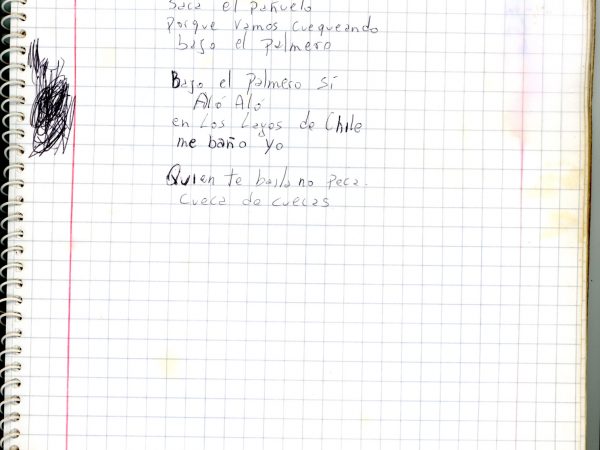 Saca el pañuelo
Porque vamos cuequeando
bajo el palmero
Bajo el palmero sí
Aló Aló
en Los Lagos de Chile
me baño yo
Quien te baila no peca.
cueca de cuecas